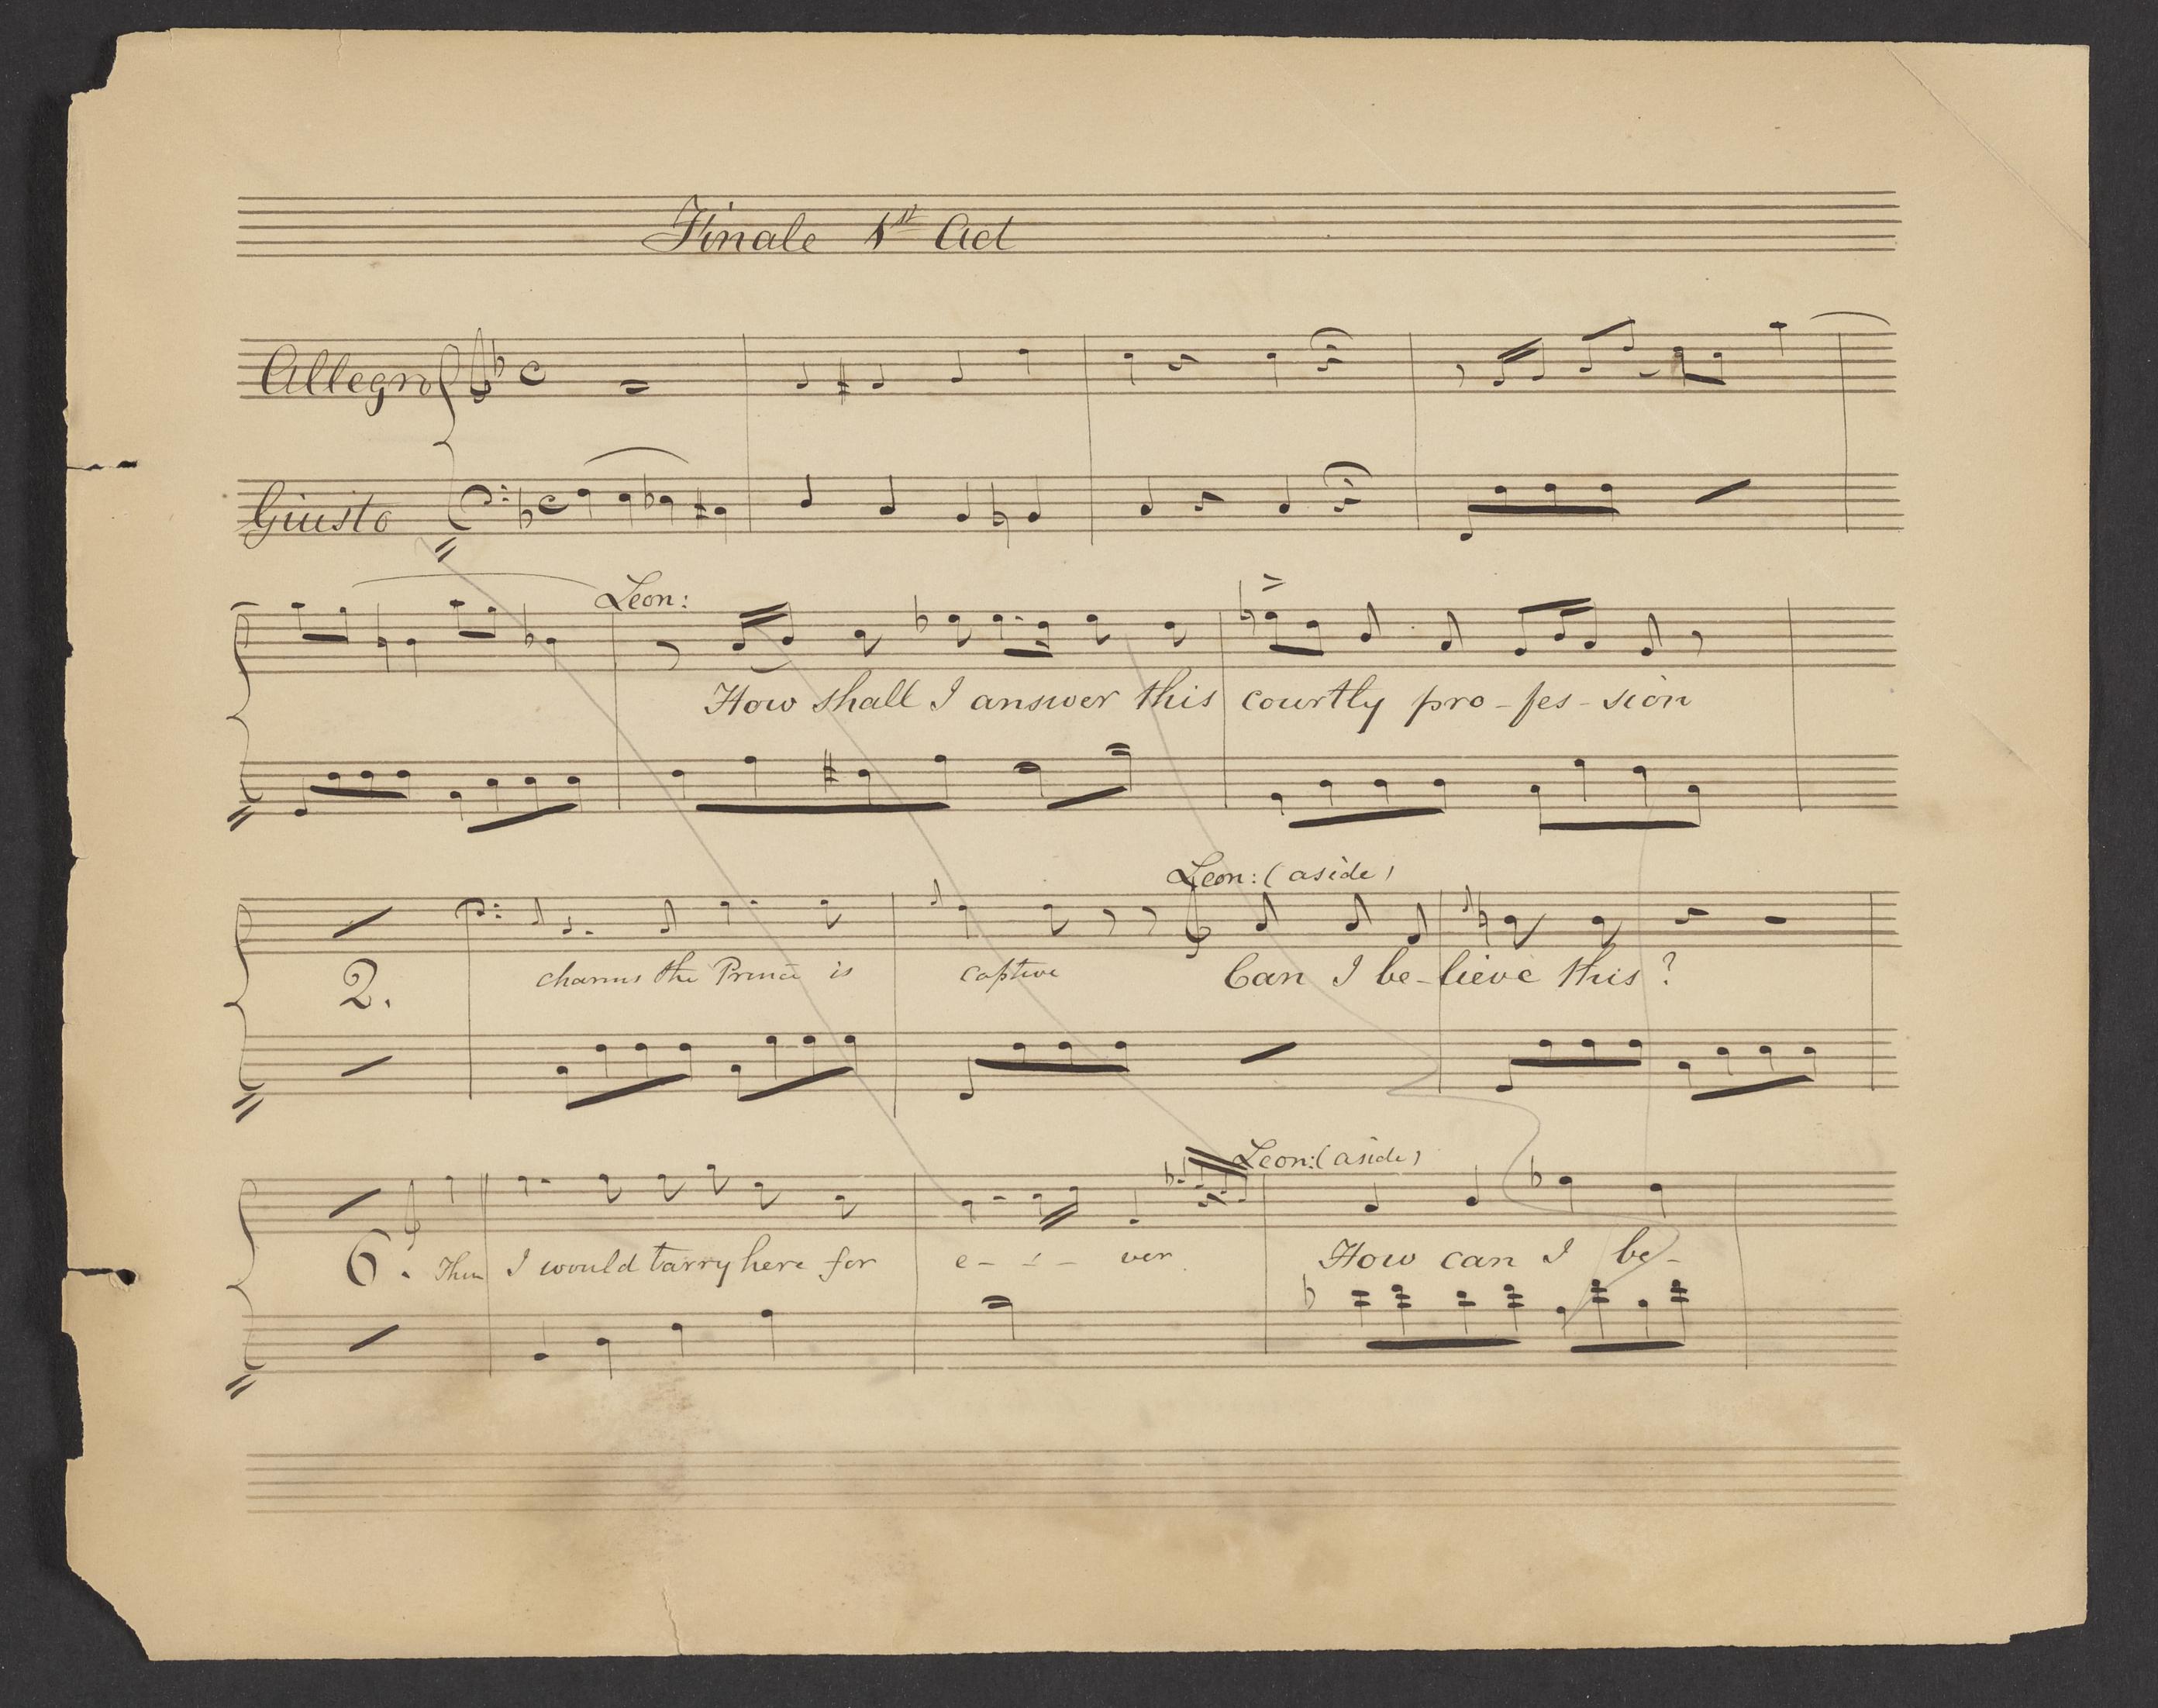 Finale 1st Act
Allegro
Giusto
Leon:
How shall I answer this courtly pro-fes-sion
Leon: (aside)
2. charms the Prince is captive Can I be-lieve this?
Leon: (aside)
6. Then I would tarry here for e - - - ver How can I be-